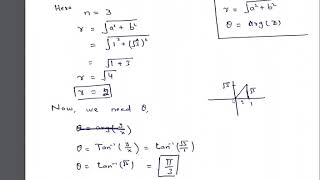 Here n = 3
r = √a² + b²
= √1² + (√3)²
= √1 + 3
r = √4
r = 2
r = √a² + b²
θ = Arg(z)
Now, we need θ,
θ = arg(y/x)
θ = Tan⁻¹(y/x) = tan⁻¹(√3/1)
θ = tan⁻¹(√3) = π/3
√3
√3
1